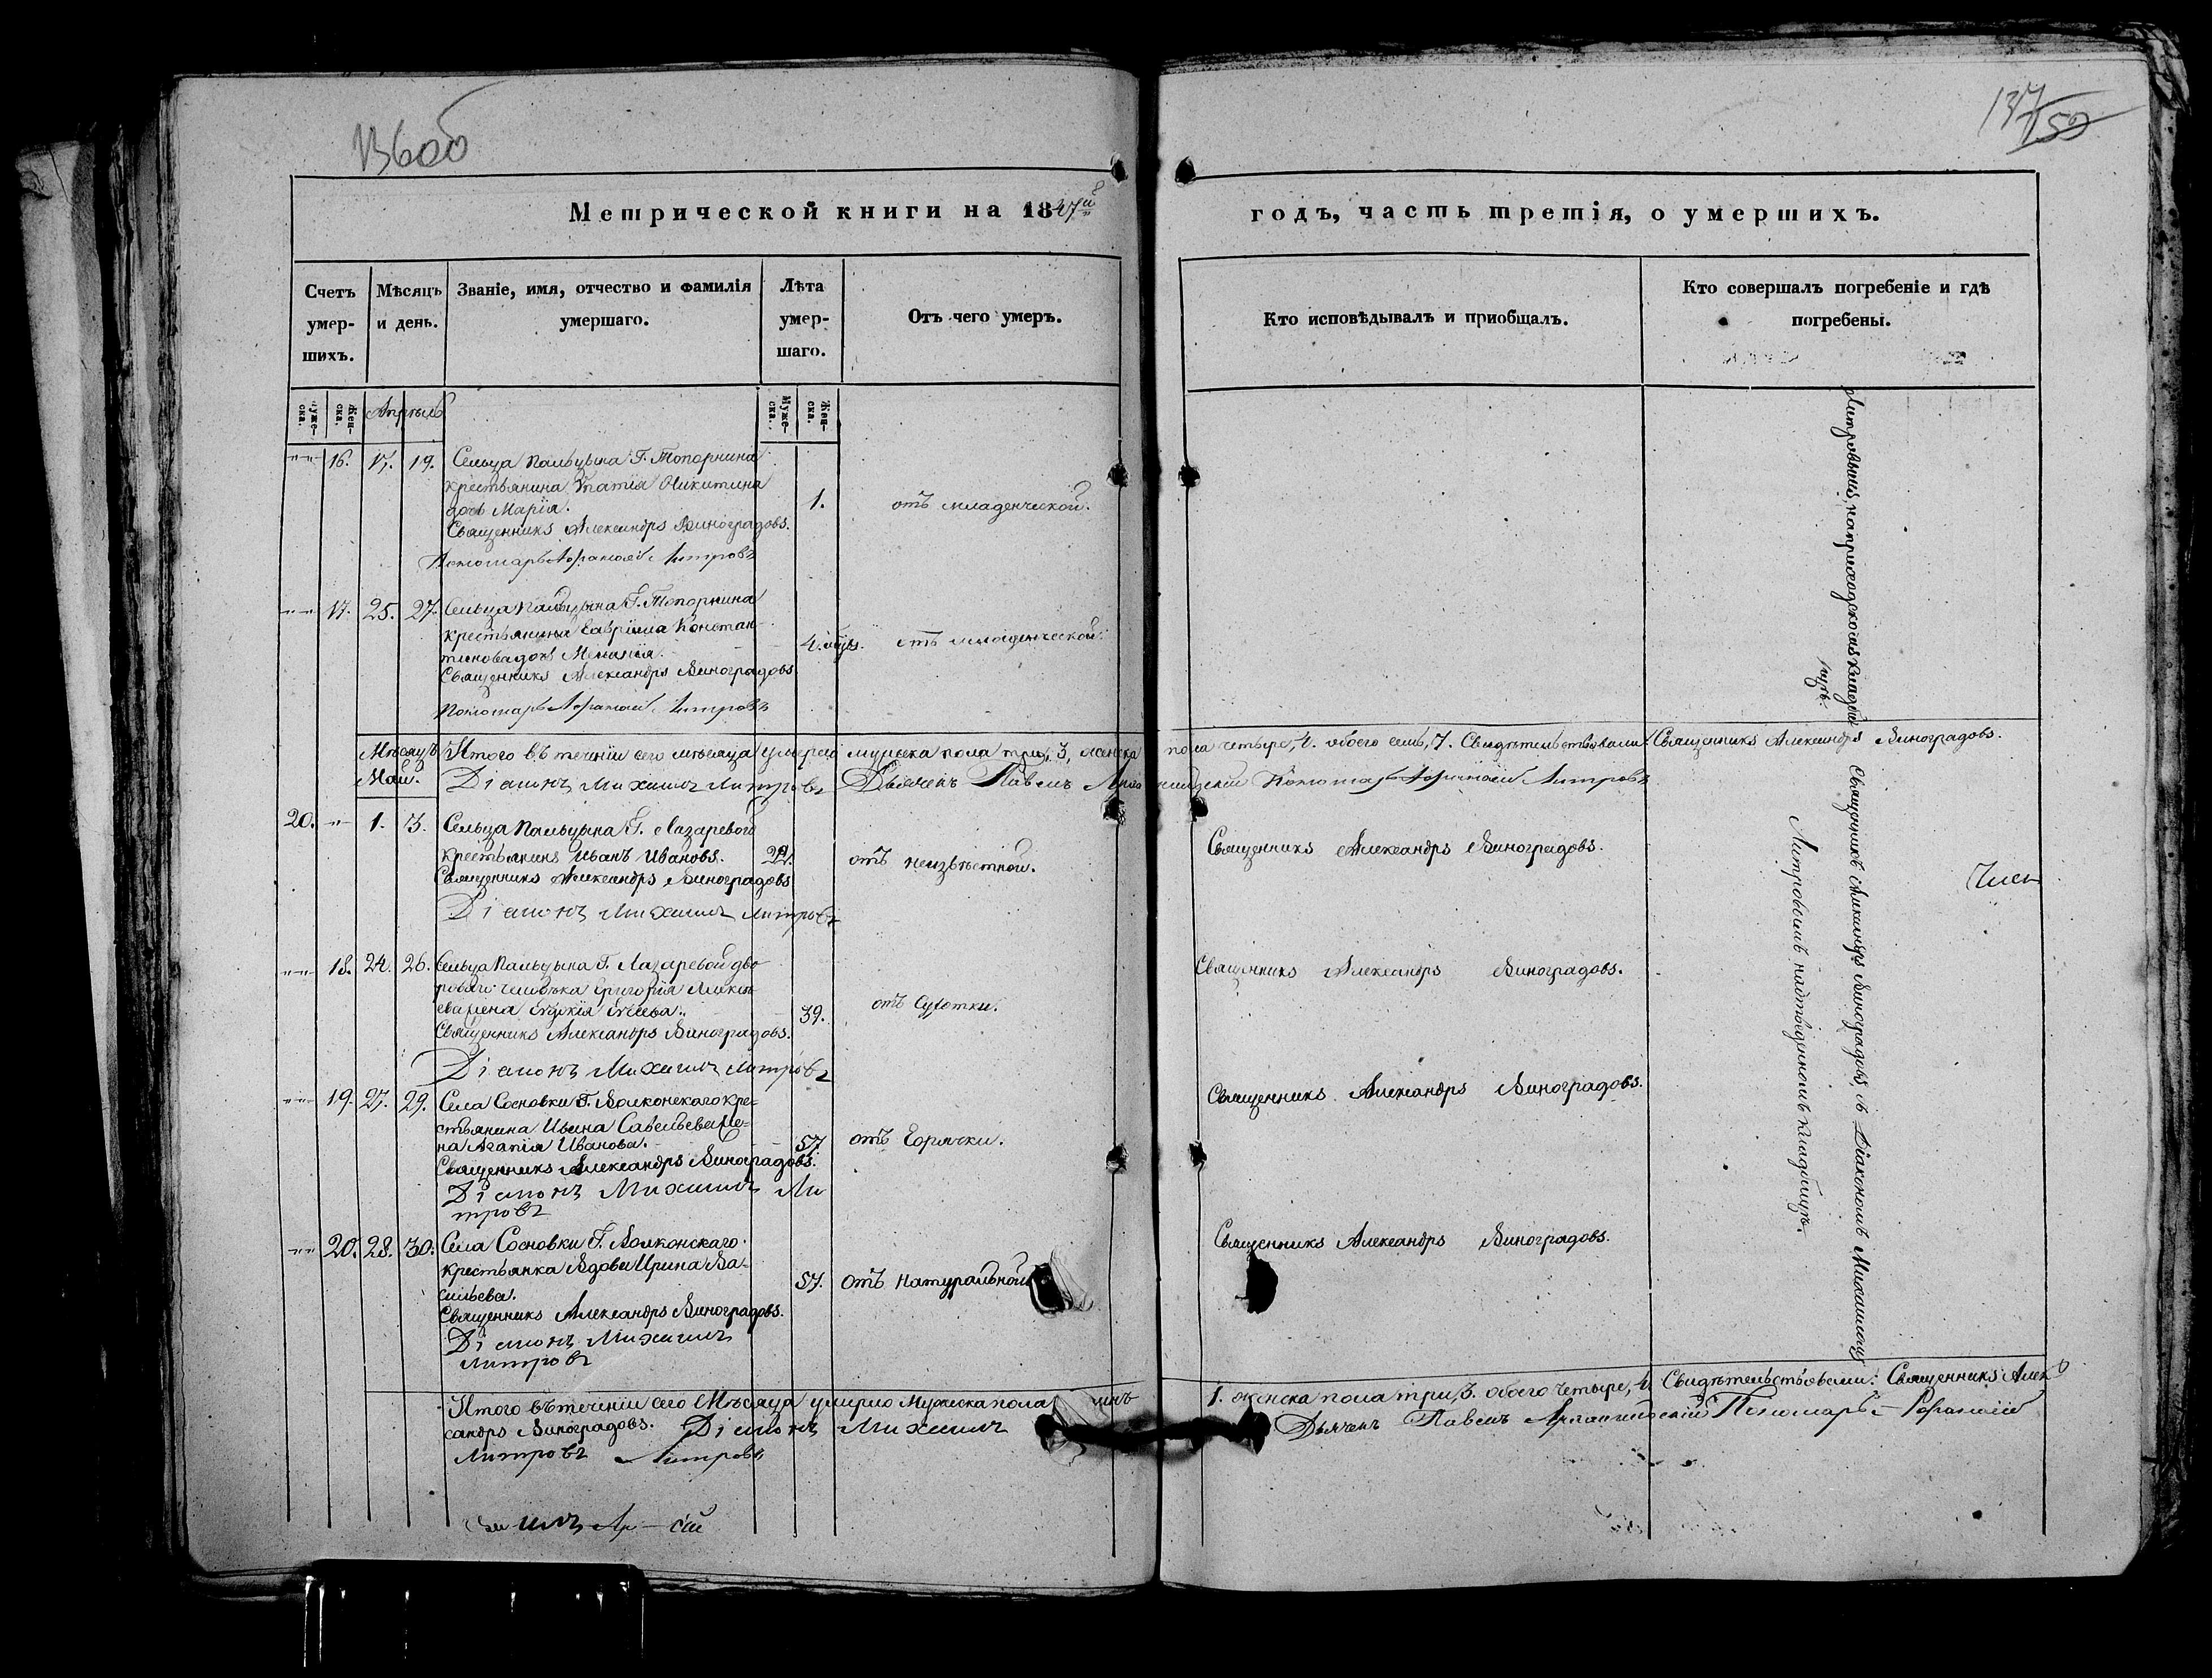 136об
137
59
Метрической книги на 1847й годъ, часть третія, о умершихъ.
Счетъ умер-шихъ.
Мѣсяцъ и день.
Званіе, имя, отчество и фамилія умершаго.
Лѣта умер-шаго.
Отъ чего умеръ.
Кто исповѣдывалъ и пріобщалъ.
Кто совершалъ погребеніе и гдѣ погребены.
Муже-ска.
Жен-ска.
Апрѣль
Муже-ска.
Жен-ска.
16. 17. 19. Сельца Пальцына Г. Топорнина
крестьянина Никитина
дочь Марія. 1. отъ младенческой.
Священникъ Александръ Виноградовъ.
Пономарь Афанасій Митровъ
17. 25. 27. Сельца Пальцына Г. Топорнина
крестьянина Гавріила Констан-
тинова дочь Меланія. 4. мѣся. отъ младенческой.
Священникъ Александръ Виноградовъ
Пономарь Афанасій Митровъ
Митровымъ, на приходскомъ кладби-
щѣ.
Мѣсяцъ Май.
Итого въ теченіи сего мѣсяца умерло мужеска пола три, 3, женска пола четыре, 4. обоего семь, 7. Свидѣтельствовали: Священникъ Александръ Виноградовъ.
Діаконъ Михаилъ Митровъ Дьячекъ Павелъ Пономарь Афанасій Митровъ
20. 1. 3. Сельца Пальцына Г. Лазаревой
крестьянинъ Иванъ Ивановъ. отъ неизвѣстной. Священникъ Александръ Виноградовъ.
Священникъ Александръ Виноградовъ
Діаконъ Михаилъ Митровъ
18. 24. 26. Сельца Пальцына Г. Лазаревой дво-
роваго человѣка Григорія
жена 39. отъ Сухотки. Священникъ Александръ Виноградовъ.
Священникъ Александръ Виноградовъ.
Діаконъ Михаилъ Митровъ
19. 27. 29. Села Сосновки Г. Волконскаго кре-
стьянина Ивана Савельева же-
на Агапія Иванова. 57. отъ Горячки. Священникъ Александръ Виноградовъ.
Священникъ Александръ Виноградовъ.
Діаконъ Михаилъ Ми
тровъ
20. 28. 30. Села Сосновки Г. Волконскаго
крестьянка Вдова Ирина Ва-
сильева. 57. отъ Натуральной Священникъ Александръ Виноградовъ.
Священникъ Александръ Виноградовъ.
Діаконъ Михаилъ
Митровъ
Священникъ Александръ Виноградовъ, съ Діакономъ Михаиломъ
Митровымъ на кладбищѣ.
Итого въ теченіи сего Мѣсяца умерло Мужеска пола 1. женска пола три, 3. обоего четыре, 4. Свидѣтельствовали: Священникъ Алек
сандръ Виноградовъ. Діаконъ Михаилъ Дьячекъ Павелъ Пономарь Афанасій
Митровъ Митровъ